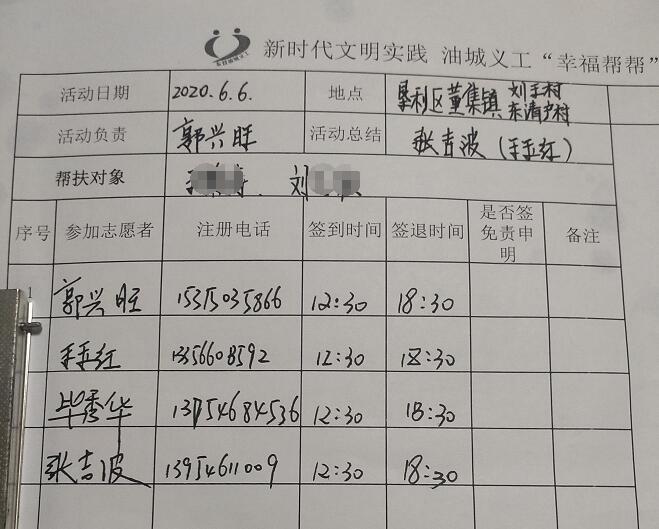 新时代文明实践 油城义工“幸福帮帮”
活动日期 2020.6.6. 地点 垦利区董集镇 刘王村
东清户村
活动负责 郭兴旺 活动总结 张吉波（王玉红）
帮扶对象 刘
序号 参加志愿者 注册电话 签到时间 签退时间 是否签免责申明 备注
1 郭兴旺 15315035866 12:30 18:30
王玉红 12:30 18:30
毕秀华 13754684536 12:30 18:30
张吉波 13954611009 12:30 18:30